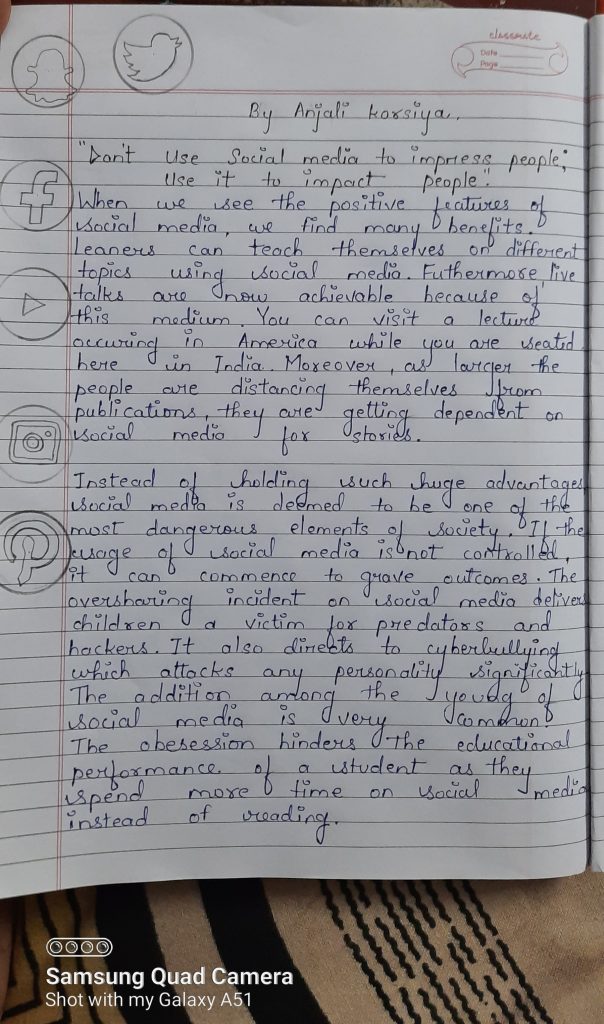 classmate
Date
Page
By Anjali Korsiya.
"Don't Use Social media to impress people;
Use it to impact people".
When we see the positive features of
social media, we find many benefits.
Leaners can teach themselves on different
topics using social media. Futhermore, live
talks are now achievable because of
this medium. You can visit a lecture
occuring in America while you are seated
here in India. Moreover, as larger the
people are distancing themselves from
publications, they are getting dependent on
social media for stories.
Instead of holding such huge advantages
social media is deemed to be one of the
most dangerous elements of society. If the
usage of social media is not controlled,
it can commence to grave outcomes. The
oversharing incident on social media delivers
children a victim for predators and
hackers. It also directs to cyberbullying
which attacks any personality significantly.
The addition among the young of
social media is very common.
The obesession hinders the educational
performance of a student as they
spend more time on social media
instead of reading.
Samsung Quad Camera
Shot with my Galaxy A51